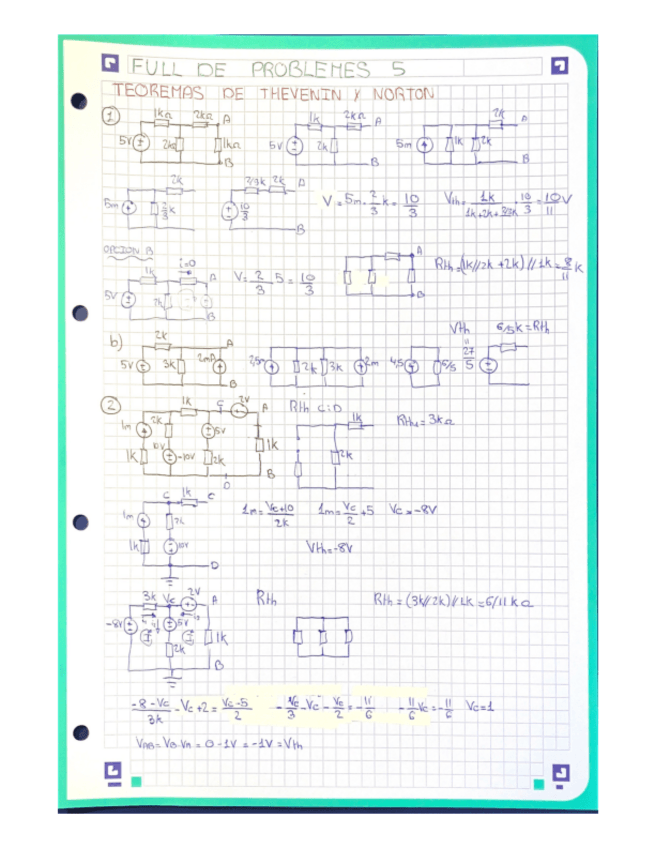 FULL DE PROBLEMES 5
TEOREMAS DE THEVENIN Y NORTON
1
1kΩ 2kΩ A
5V 2kΩ 1kΩ
B
1k 2kΩ A
5V 2k
B
2k A
5m 1k 2k
B
2k
5m 2/3 k
2/3k 2k A
10/3
B
V = 5m · 2/3 k = 10/3
Vth = 1k/(1k+2k+2/3k) · 10/3 = 10/11 V
OPCION B
1k i=0 A
5V 2k
B
V = 2/3 · 5 = 10/3
A
B
Rth = (1k//2k + 2k) // 1k = 8/11 k
b)
2k A
5V 3k 2mA
B
2,5m 2k 3k 2m
4,5 6/5
Vth = 27/5
6/5k = Rth
2
1k C 2V A
1m 2k 5V 1k
1k 10V -10V 2k B
D
Rth C:D
1k
2k
Rth1 = 3kΩ
C 1k C
1m 2k
1k 10V
D
1m = (Vc+10)/2k
1m = Vc/2 + 5
Vc = -8V
Vth = -8V
3k Vc 2V A
-8V 5V 1k
2k B
Rth
Rth = (3k//2k)//1k = 6/11 kΩ
(-8-Vc)/3k - Vc + 2 = (Vc-5)/2
-Vc/3 - Vc - Vc/2 = -11/6
-11/6 Vc = -11/6
Vc = 1
VAB = VB-VA = 0 - 1V = -1V = Vth